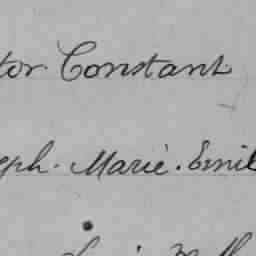 tor Constant
eph. Marie. Emil